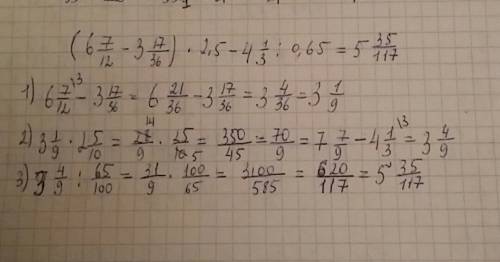 (6 7/12 - 3 17/36) · 2,5 - 4 1/3 : 0,65 = 5 35/117
1) 6 7/12 \3 - 3 17/36 = 6 21/36 - 3 17/36 = 3 4/36 = 3 1/9
2) 3 1/9 · 25/10 = 28/9 14 · 25/10 5 = 350/45 = 70/9 = 7 7/9 - 4 1/3 \3 = 3 4/9
3) 3 4/9 : 65/100 = 31/9 · 100/65 = 3100/585 = 620/117 = 5 35/117